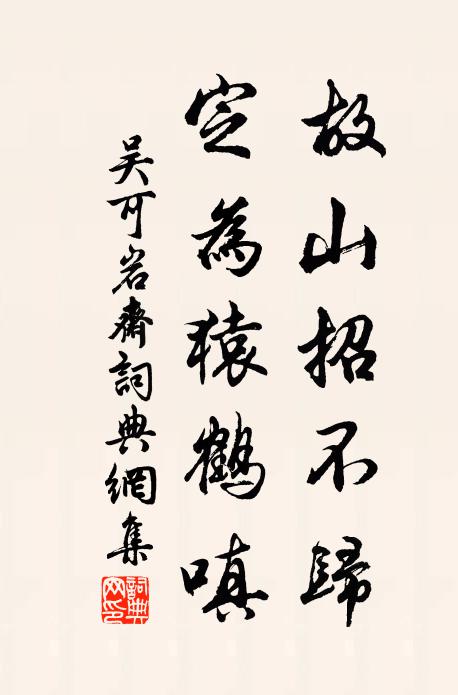 故山招不歸
定為猿鶴嗔
吳可岩齋詞典網集
詞典網印